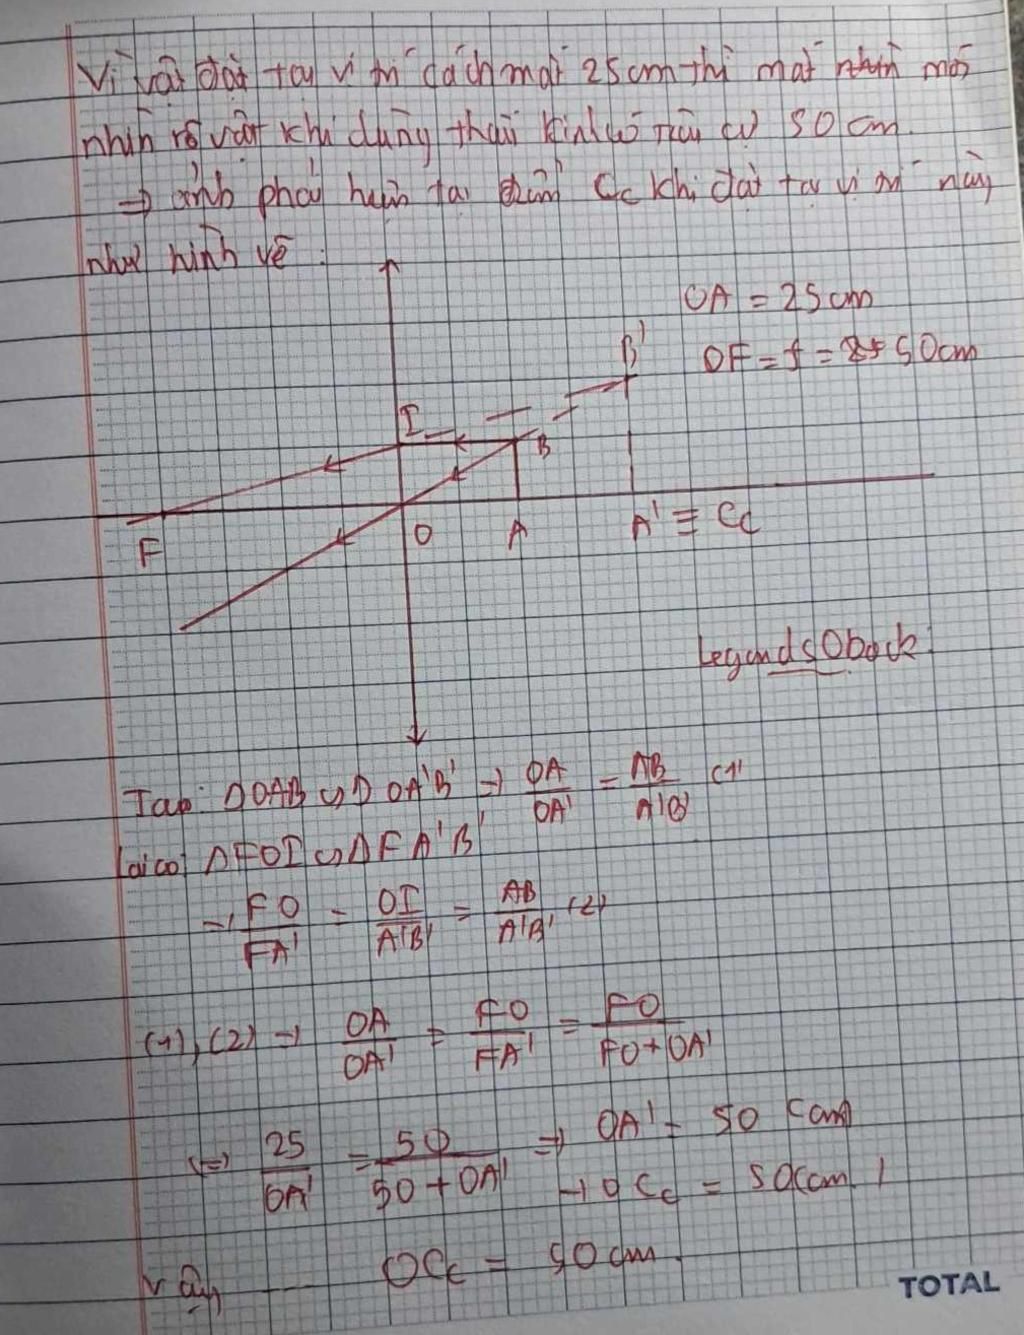 Vì vật đặt tại vị trí cách mắt 25cm thì mắt nhìn mới
nhìn rõ vật khi dùng thấu kính có tiêu cự 50cm.
⇒ ảnh phải hiện tại điểm Cc khi đặt tại vị trí này
như hình vẽ :
OA = 25cm
OF = f = 50cm
B'
I
B
F
O
A
A' ≡ Cc
LegendsOback
Ta có: ΔOAB ∽ Δ OA'B' ⇒ OA/OA' = AB/A'B' (1)
Lại có: ΔFOI ∽ ΔFA'B'
→ FO/FA' = OI/A'B' = AB/A'B' (2)
(1), (2) ⇒ OA/OA' = FO/FA' = FO/FO+OA'
⇔ 25/OA' = 50/50+OA' ⇒ OA' = 50 (cm)
→ OCc = 50(cm)
Vậy OCc = 50cm.
TOTAL